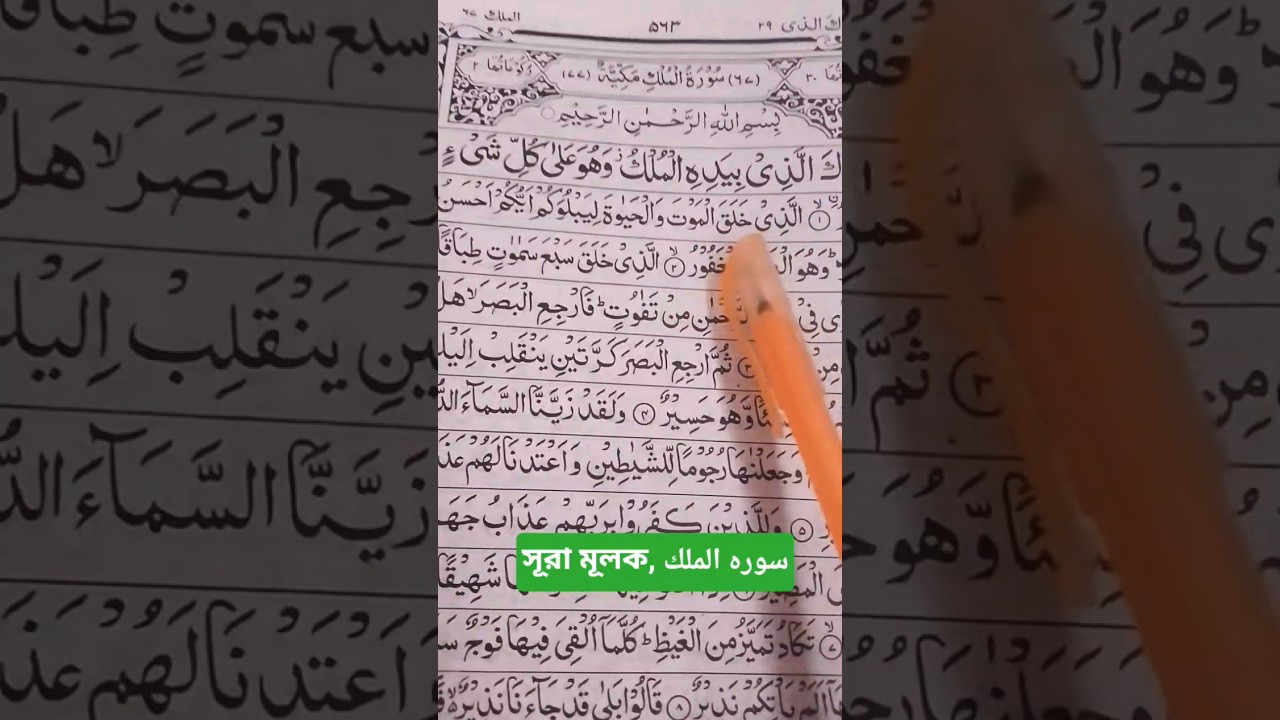 الملك ٦٧ ۵٦۳ ك الذى ٢٩
(٦٧) سُوْرَةُ الْمُلْكِ مَكِّيَّةٌ (٧٧)
بِسْمِ اللّٰهِ الرَّحْمٰنِ الرَّحِيْمِ
كَ الَّذِىْ بِيَدِهِ الْمُلْكُ وَهُوَ عَلٰى كُلِّ شَىْءٍ
۱ الَّذِىْ خَلَقَ الْمَوْتَ وَالْحَيٰوةَ لِيَبْلُوَكُمْ اَيُّكُمْ اَحْسَنُ
وَهُوَ غَفُوْرُ ۲ الَّذِىْ خَلَقَ سَبْعَ سَمٰوٰتٍ طِبَاقًا
ى فِىْ حْمٰنِ مِنْ تَفٰوُتٍ فَارْجِعِ الْبَصَرَ هَلْ
مِنْ ۳ ثُمَّ ارْجِعِ الْبَصَرَ كَرَّتَيْنِ يَنْقَلِبْ اِلَيْ
ئًا وَّهُوَ حَسِيْرٌ ۴ وَلَقَدْ زَيَّنَّا السَّمَآءَ الدُّ
وَجَعَلْنٰهَا رُجُوْمًا لِّلشَّيٰطِيْنِ وَاَعْتَدْنَا لَهُمْ عَذَ
۵ وَلِلَّذِيْنَ كَفَرُوْا بِرَبِّهِمْ عَذَابُ جَهَ
সূরা মূলক, سوره الملك
شَهِيْقًا
۷ تَكَادُ تَمَيَّزُ مِنَ الْغَيْظِ كُلَّمَآ اُلْقِىَ فِيْهَا فَوْجٌ سَ
اَلَمْ يَاْتِكُمْ نَذِيْرٌ ۸ قَالُوْا بَلٰى قَدْ جَآءَنَا نَذِيْرٌ